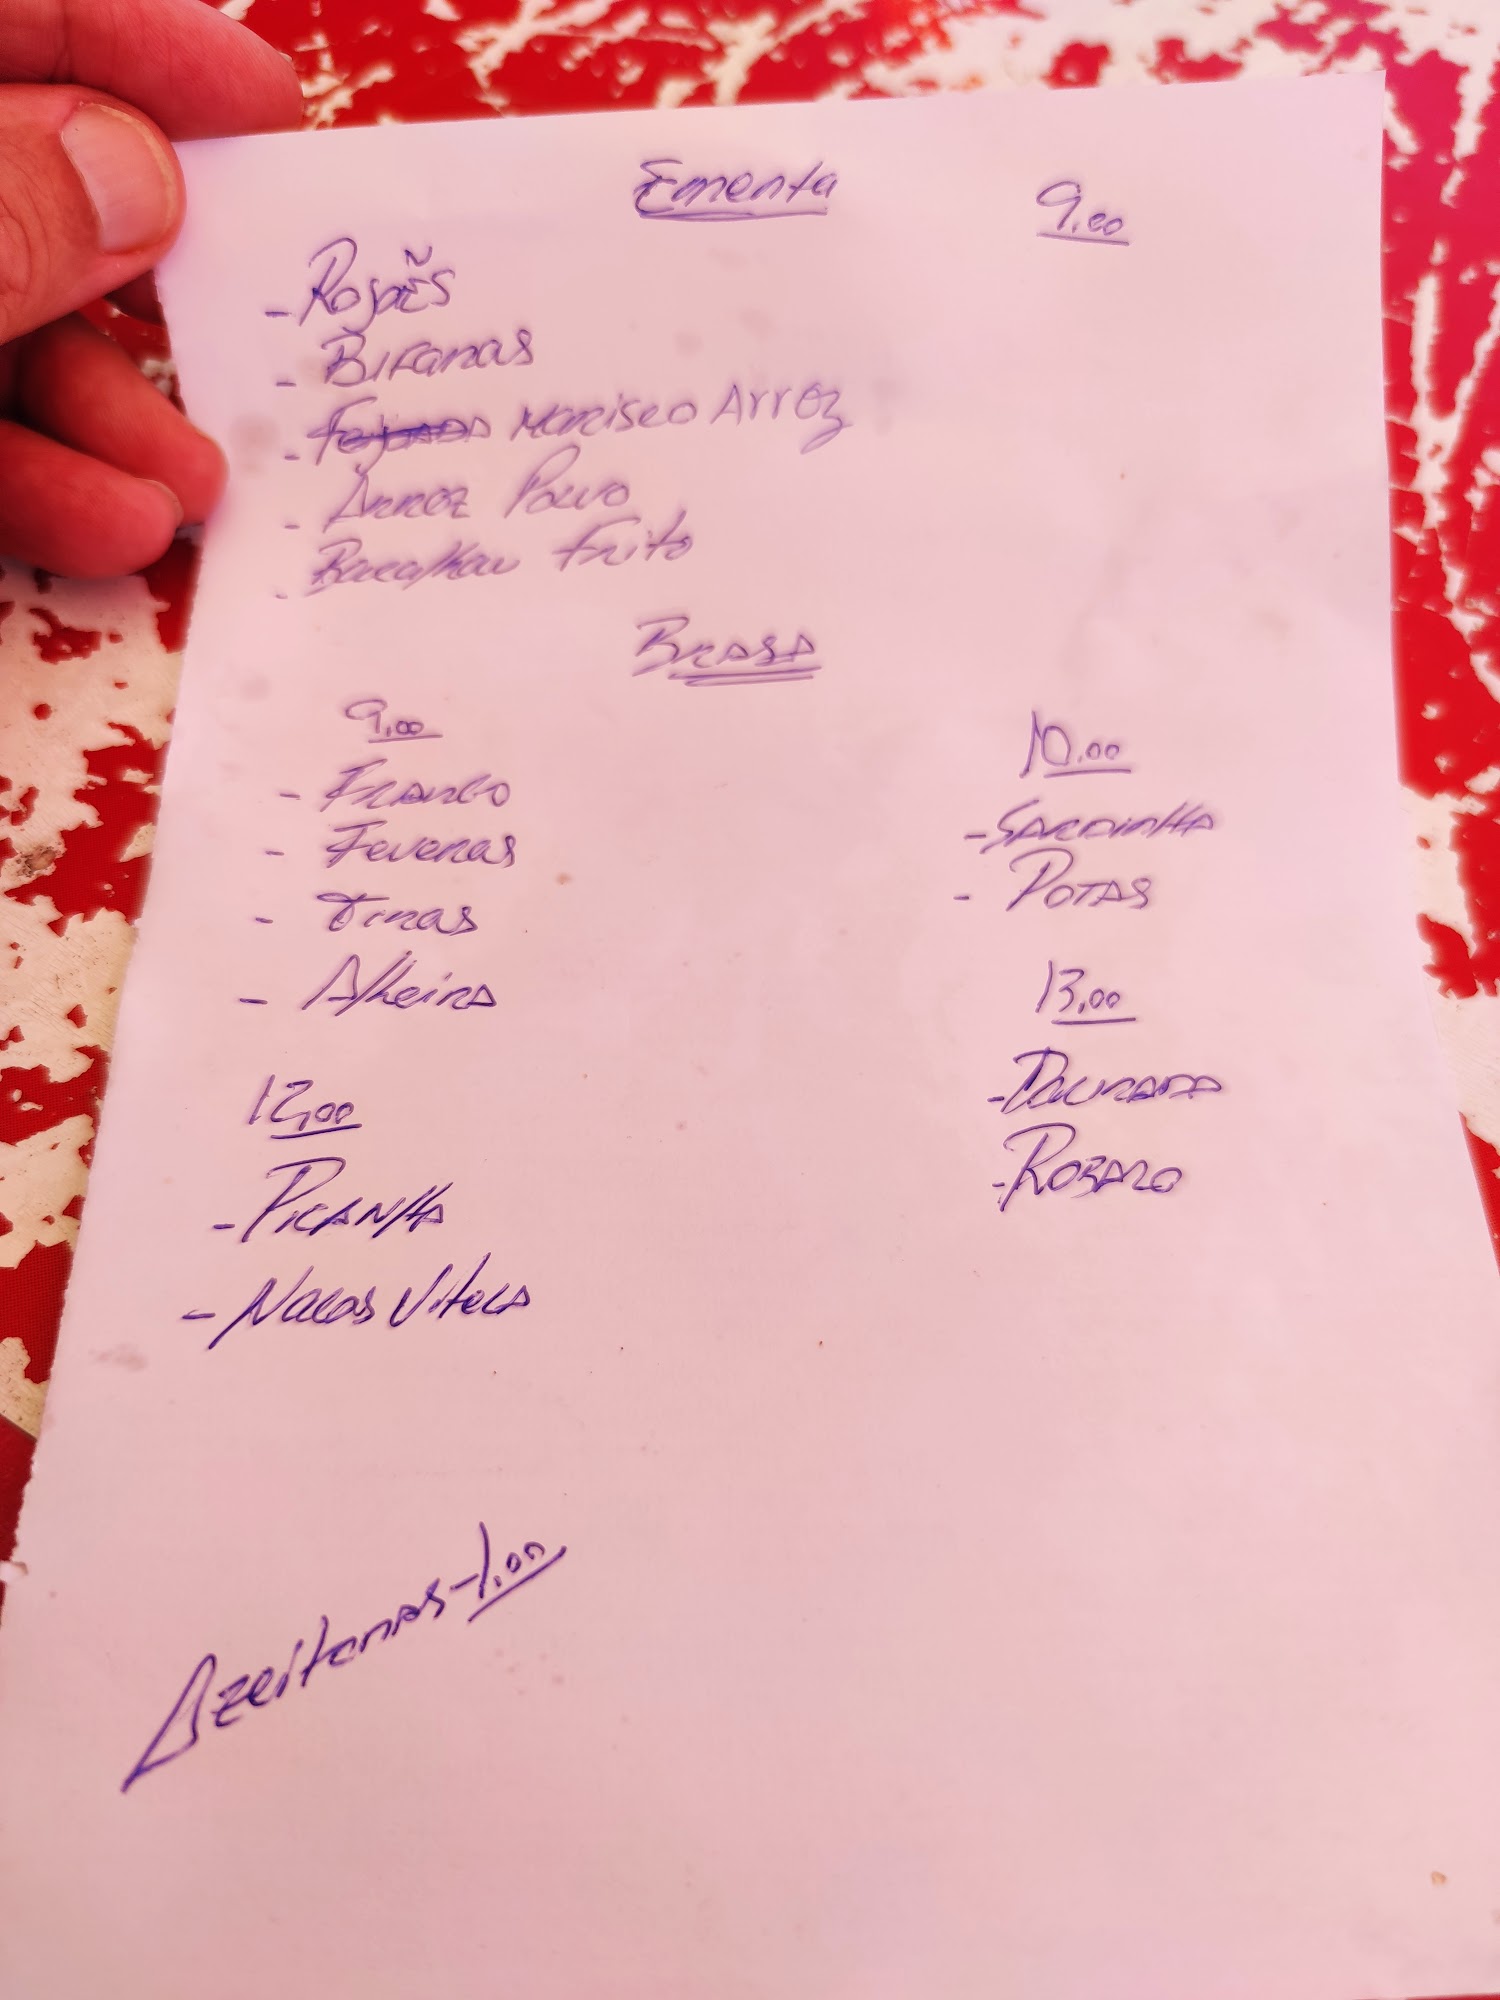 Ementa
9.00
- Rojões
- Bifanas
- Feijoada Marisco Arroz
- Arroz Polvo
- Bacalhau Frito
Brasa
9.00
- Frango
- Feveras
- Tiras
- Alheira
12,00
- PICANHA
- Nacos Vitela
10.00
- SARDINHA
- POTAS
13,00
- DOURADA
- ROBALO
Azeitonas - 1.00